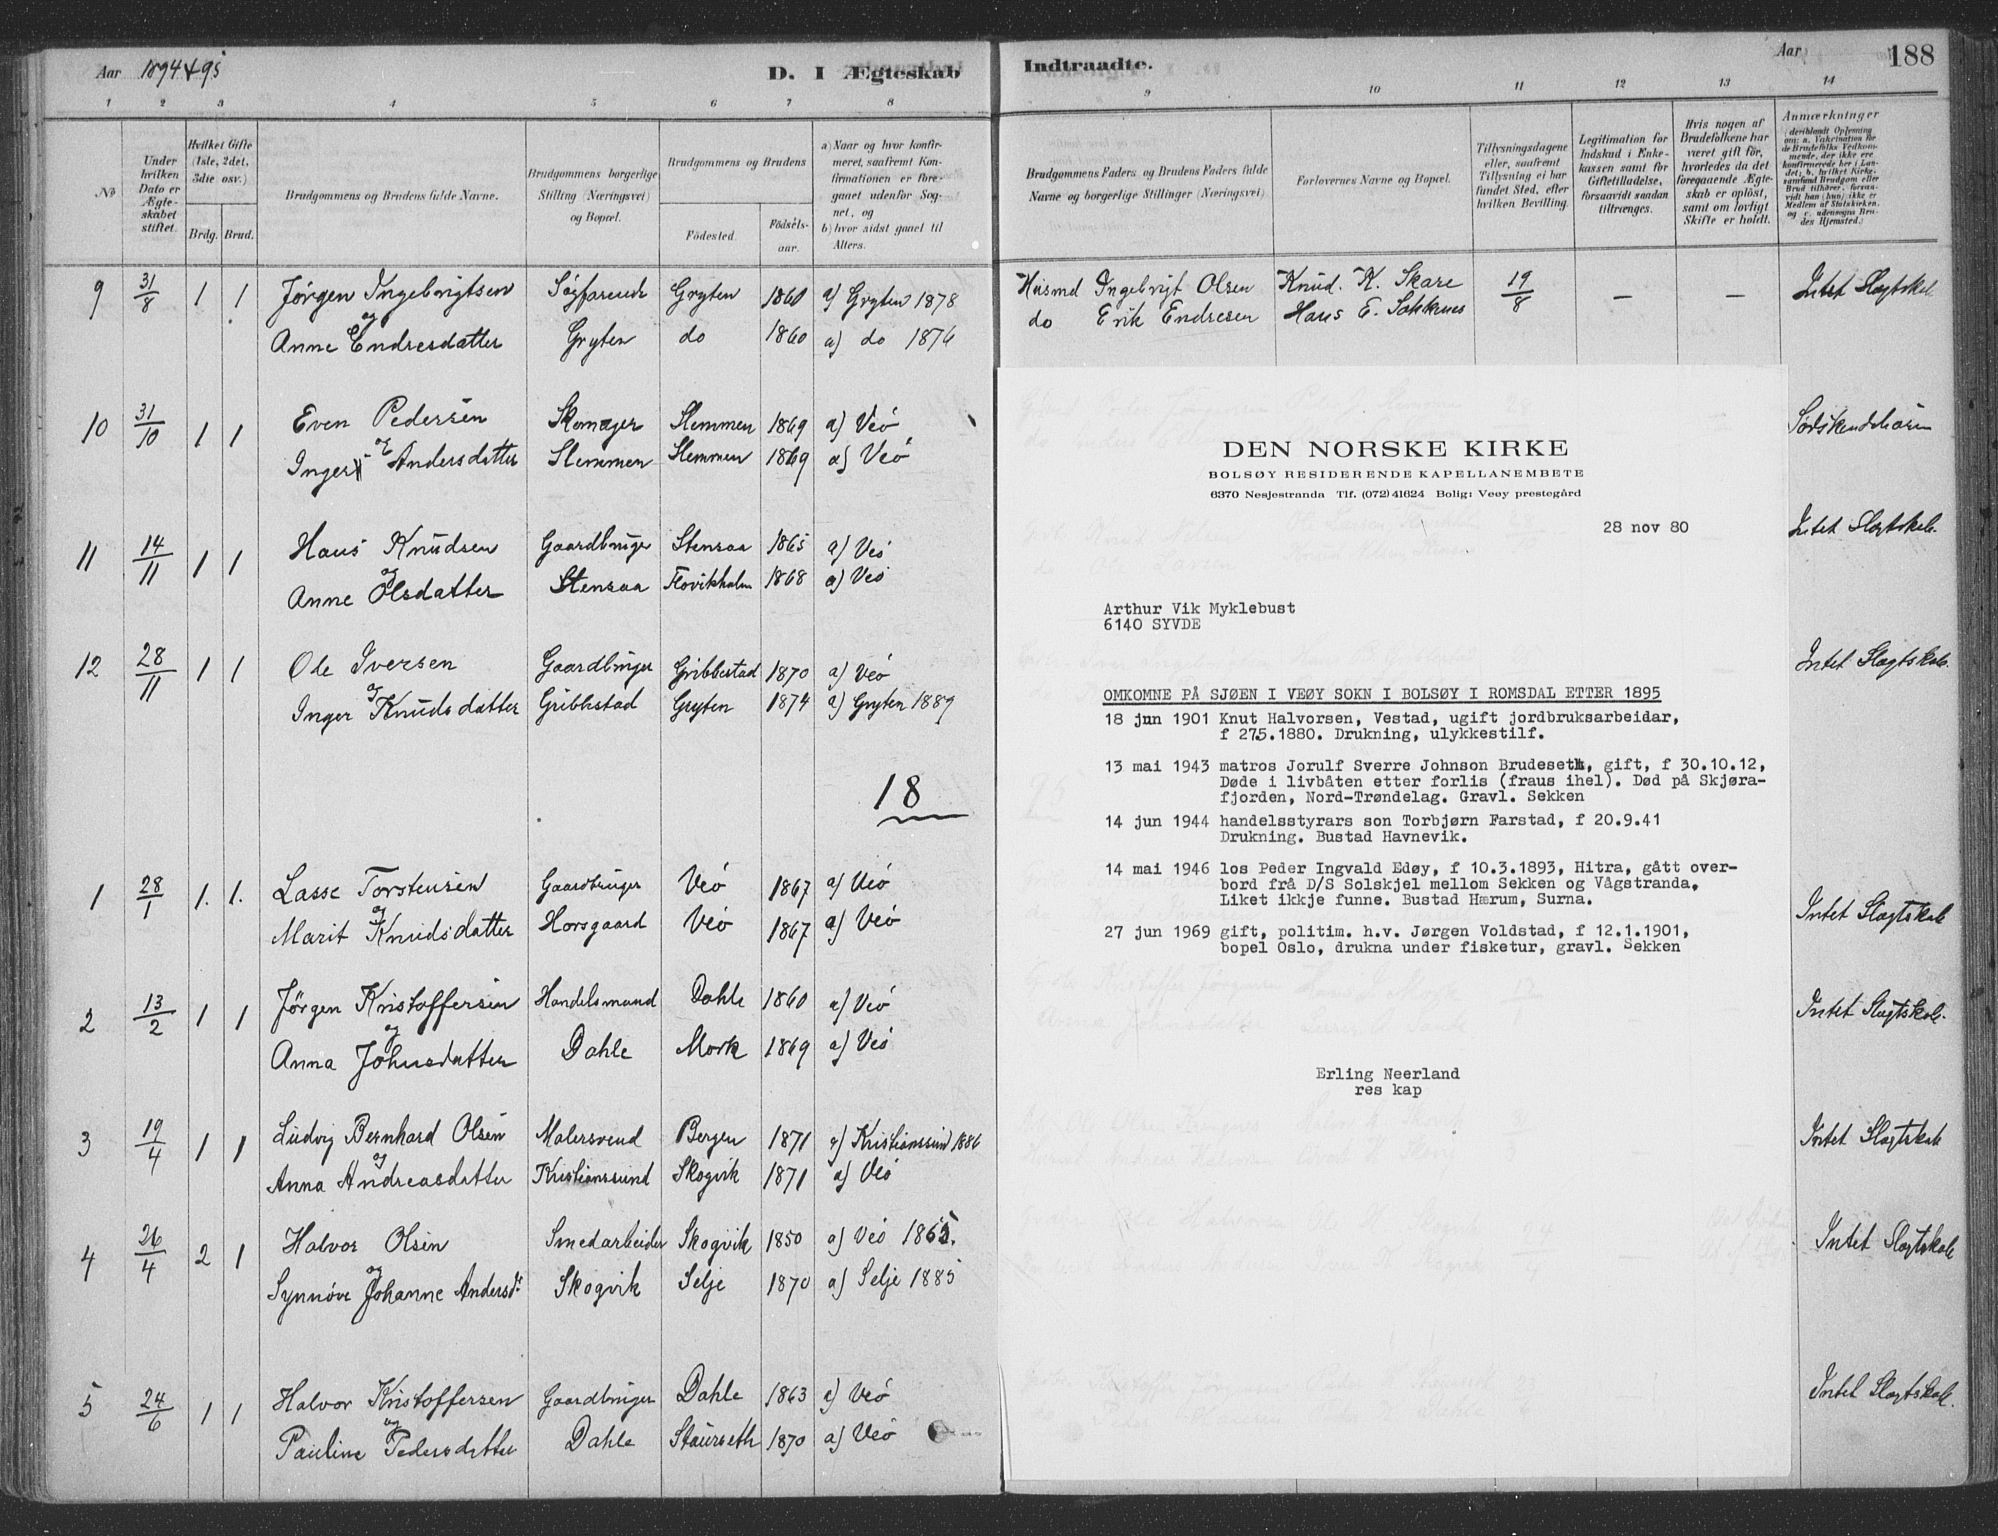 Aar 1894 & 95
D. I Ægteskab
Indtraadte.
Aar
188
1 2 3 4 5 6 7 8
9 10 11 12 13 14
No
Under hvilken Dato er Ægteskabet stiftet.
Hvilket Gifte (1ste, 2det, 3die osv.)
Brdg. Brud.
Brudgommens og Brudens fulde Navne.
Brudgommens borgerlige Stilling (Næringsvei) og Bopæl.
Brudgommens og Brudens
Fødested.
Fødselsaar.
a) Naar og hvor konfirmeret, saafremt Konfirmationen er foregaaet udenfor Sognet, og
b) hvor sidst gaaet til Alters.
Brudgommens Faders og Brudens Faders fulde Navne og borgerlige Stillinger (Næringsvei)
Forlovernes Navne og Bopæl.
Tillysningsdagene eller, saafremt Tillysning ei har fundet Sted, efter hvilken Bevilling.
Legitimation for Indskud i Enkekassen samt for Giftetilladelse, forsaavidt saadan tiltrænges.
Hvis nogen af Brudefolkene har været gift før, hvorledes da det foregaaende Ægteskab er opløst, samt om lovligt Skifte er holdt.
Anmærkninger
(deriblandt Oplysning om: a. Vakcination for de Brudefolks Vedkommende, der ikke ere konfirmerede her i Landet; b. hvilket Kirkesamfund Brudgom eller Brud tilhører, forsaavidt han (hun) ikke er Medlem af Statskirken, og c. udensogns Brudes Hjemsted.)
9 31/8 1 1 Jørgen Ingebrigtsen Søfarende Gryten 1860 a) Gryten 1878 Husmd Ingebrigt Olsen Knud K. Skare 19/8 — — Intet Slægtskab
og
Anne Endresdatter Gryten do 1860 a) do 1876 do Erik Endresen Hans E. Sakkenes
10 31/10 1 1 Even Pedersen Skomager Slemmen 1869 a) Veø Södskendebörn
og
Inger E Andersdatter Slemmen Slemmen 1869 a) Veø
11 14/11 1 1 Hans Knudsen Gaardbruger Stensaa 1865 a) Veø Intet Slægtskab.
og
Anne Olsdatter Stensaa Flovikholm 1868 a) Veø
12 28/11 1 1 Ole Iversen Gaardbruger Gribbestad 1870 a) Veø Intet Slægtskab.
og
Inger Knudsdatter Gribbestad Gryten 1874 a) Gryten 1889
18
1 28/1 1. 1. Lasse Torstensen Gaardbruger Veø 1867 a) Veø Intet Slægtskab
og
Marit Knudsdatter Horsgaard Veø 1867 a) Veø
2 13/2 1 1 Jørgen Kristoffersen Handelsmand Dahle 1860 a) Veø Intet Slægtskab.
og
Anna Johnsdatter Dahle Mork 1869 a) Veø
3 19/4 1 1 Ludvig Bernhard Olsen Malersvend Bergen 1871 a) Kristianssund 1886 Intet Slægtskab
og
Anna Andreasdatter Kristianssund Skogvik 1871 a) Veø
4 26/4 2 1 Halvor Olsen Smedarbeider Skogvik 1850 a) Veø 1865. Intet Slægtskab
og
Synnøve Johanne Andersd. Skogvik Selje 1870 a) Selje 1885
5 24/6 1 1 Halvor Kristoffersen Gaardbruger Dahle 1863 a) Veø Intet Slægtskab.
og
Pauline Pedersdatter Dahle Staurseth 1870 a) Veø
DEN NORSKE KIRKE
BOLSØY RESIDERENDE KAPELLANEMBETE
6370 Nesjestranda Tlf. (072) 41624 Bolig: Veøy prestegård
28 nov 80
Arthur Vik Myklebust
6140 SYVDE
OMKOMNE PÅ SJØEN I VEØY SOKN I BOLSØY I ROMSDAL ETTER 1895
18 jun 1901 Knut Halvorsen, Vestad, ugift jordbruksarbeidar,
f 275.1880. Drukning, ulykkestilf.
13 mai 1943 matros Jorulf Sverre Johnson Brudeseth, gift, f 30.10.12,
Døde i livbåten etter forlis (fraus ihel). Død på Skjøra-
fjorden, Nord-Trøndelag. Gravl. Sekken
14 jun 1944 handelsstyrars son Torbjørn Farstad, f 20.9.41
Drukning. Bustad Havnevik.
14 mai 1946 los Peder Ingvald Edøy, f 10.3.1893, Hitra, gått over-
bord frå D/S Solskjel mellom Sekken og Vågstranda,
Liket ikkje funne. Bustad Hærum, Surna.
27 jun 1969 gift, politim. h.v. Jørgen Voldstad, f 12.1.1901,
bopel Oslo, drukna under fisketur, gravl. Sekken
Erling Neerland
res kap